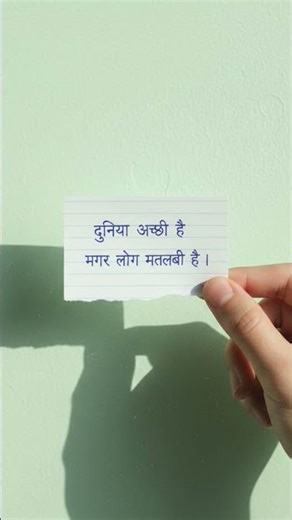 दुनिया अच्छी है
मगर लोग मतलबी है।